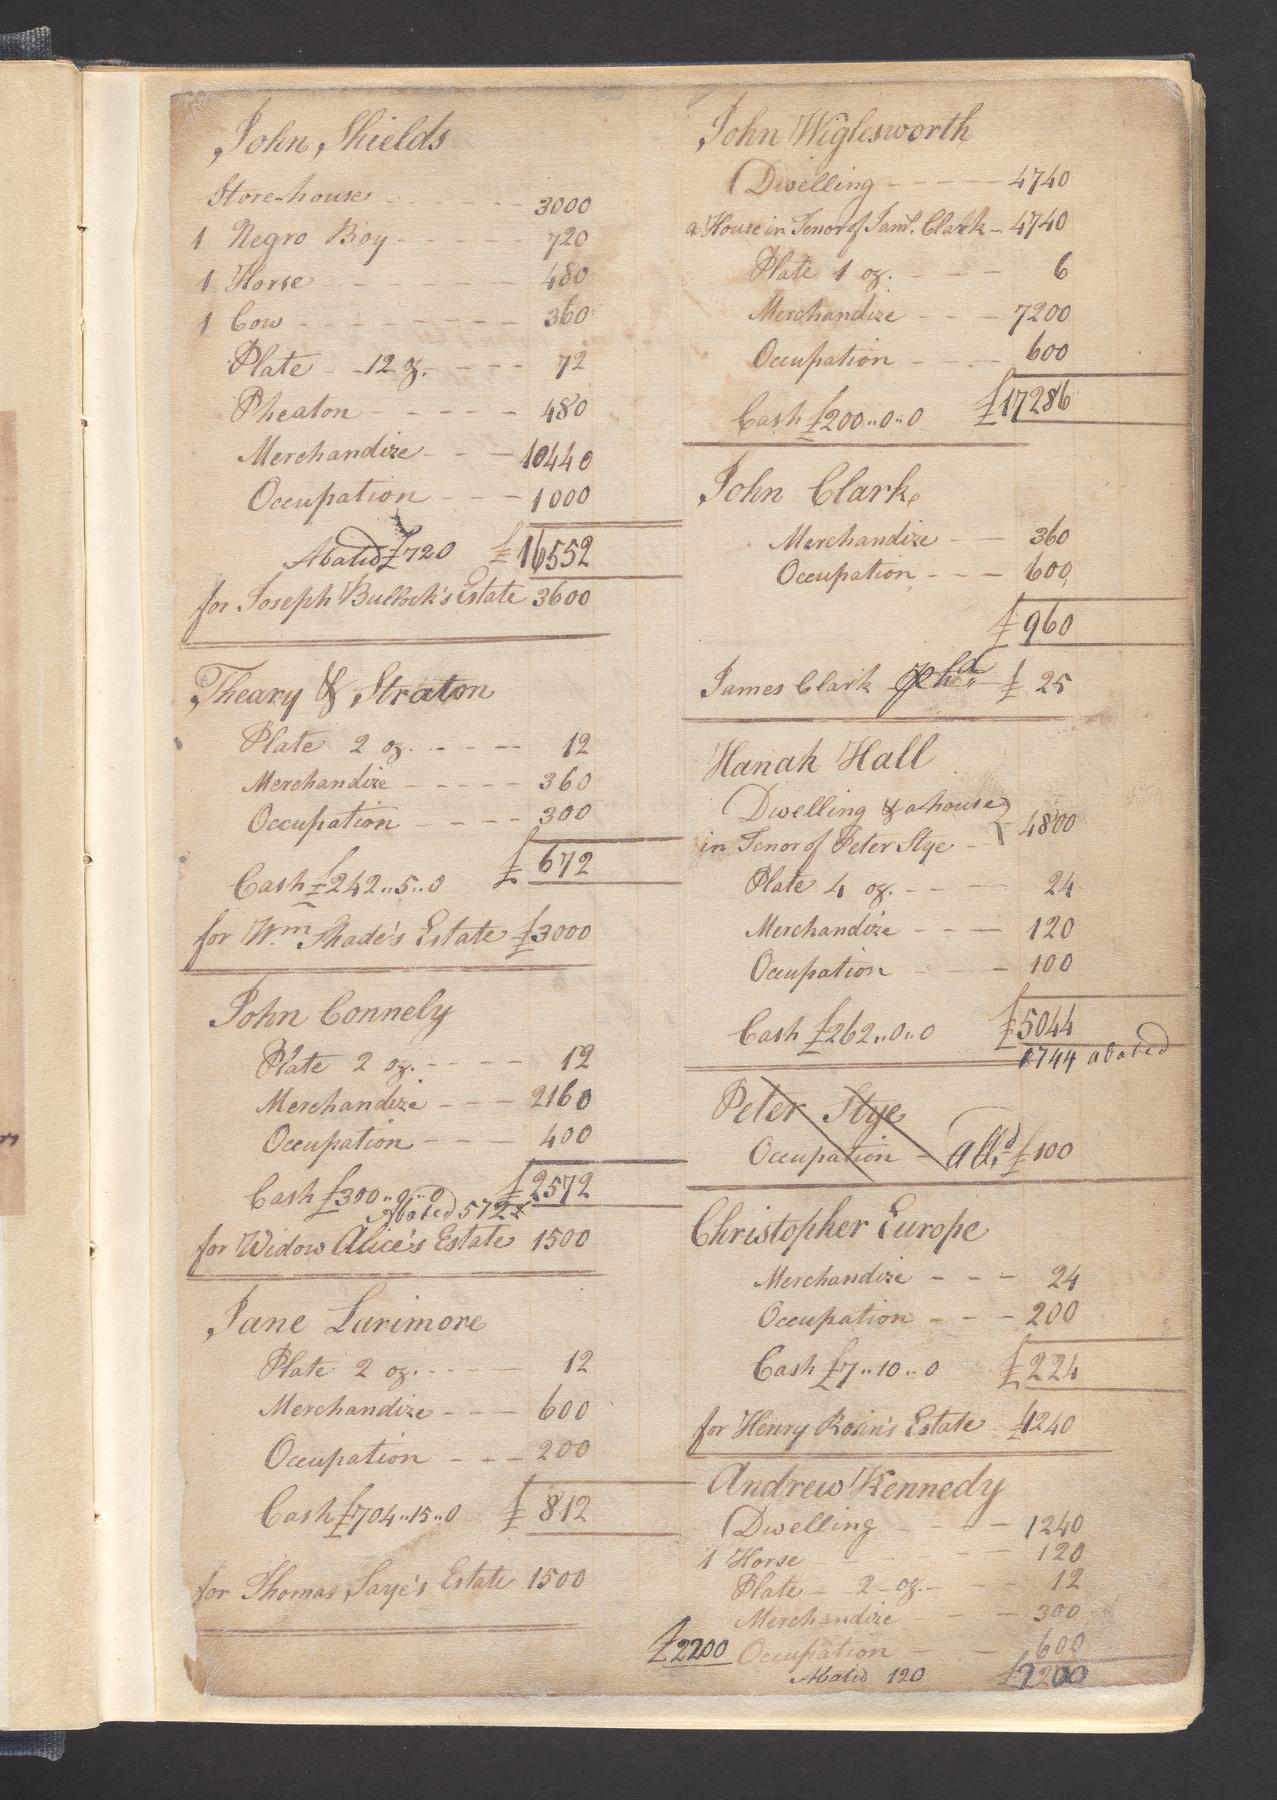 John Shields
Store-house 3000
1 Negro Boy 720
1 Horse 480
1 Cow 360
Plate 12 oz. 72
Pheaton 480
Merchandize 10440
Occupation 1000
Abated £720 £16552
for Joseph Bullock's Estate 3600
Theary & Straton
Plate 2 oz. 12
Merchandize 360
Occupation 300
£672
Cash £242..5..0
for Wm Shade's Estate £3000
John Connely
Plate 2 oz. 12
Merchandize 2160
Occupation 400
Cash £300..0..0 £2572
Abated 572
for Widow Alice's Estate 1500
Jane Larimore
Plate 2 oz. 12
Merchandize 600
Occupation 200
Cash £704..15..0 £812
for Thomas Saye's Estate 1500
John Wiglesworth
Dwelling 4740
a House in Tenor of Saml. Clark 4740
Plate 1 oz. 6
Merchandize 7200
Occupation 600
Cash £200..0..0 £17286
John Clark
Merchandize 360
Occupation 600
£960
James Clark £25
Hanah Hall
Dwelling & a house
in Tenor of Peter Stye 4800
Plate 4 oz. 24
Merchandize 120
Occupation 100
Cash £262..0..0 £5044
1744 abated
Peter Stye
Occupation £100
Christopher Europe
Merchandize 24
Occupation 200
Cash £7..10..0 £224
for Henry Rosin's Estate 4240
Andrew Kennedy
Dwelling 1240
1 Horse 120
Plate 2 oz. 12
Merchandize 300
£2200 Occupation 600
Abated 120 £2200